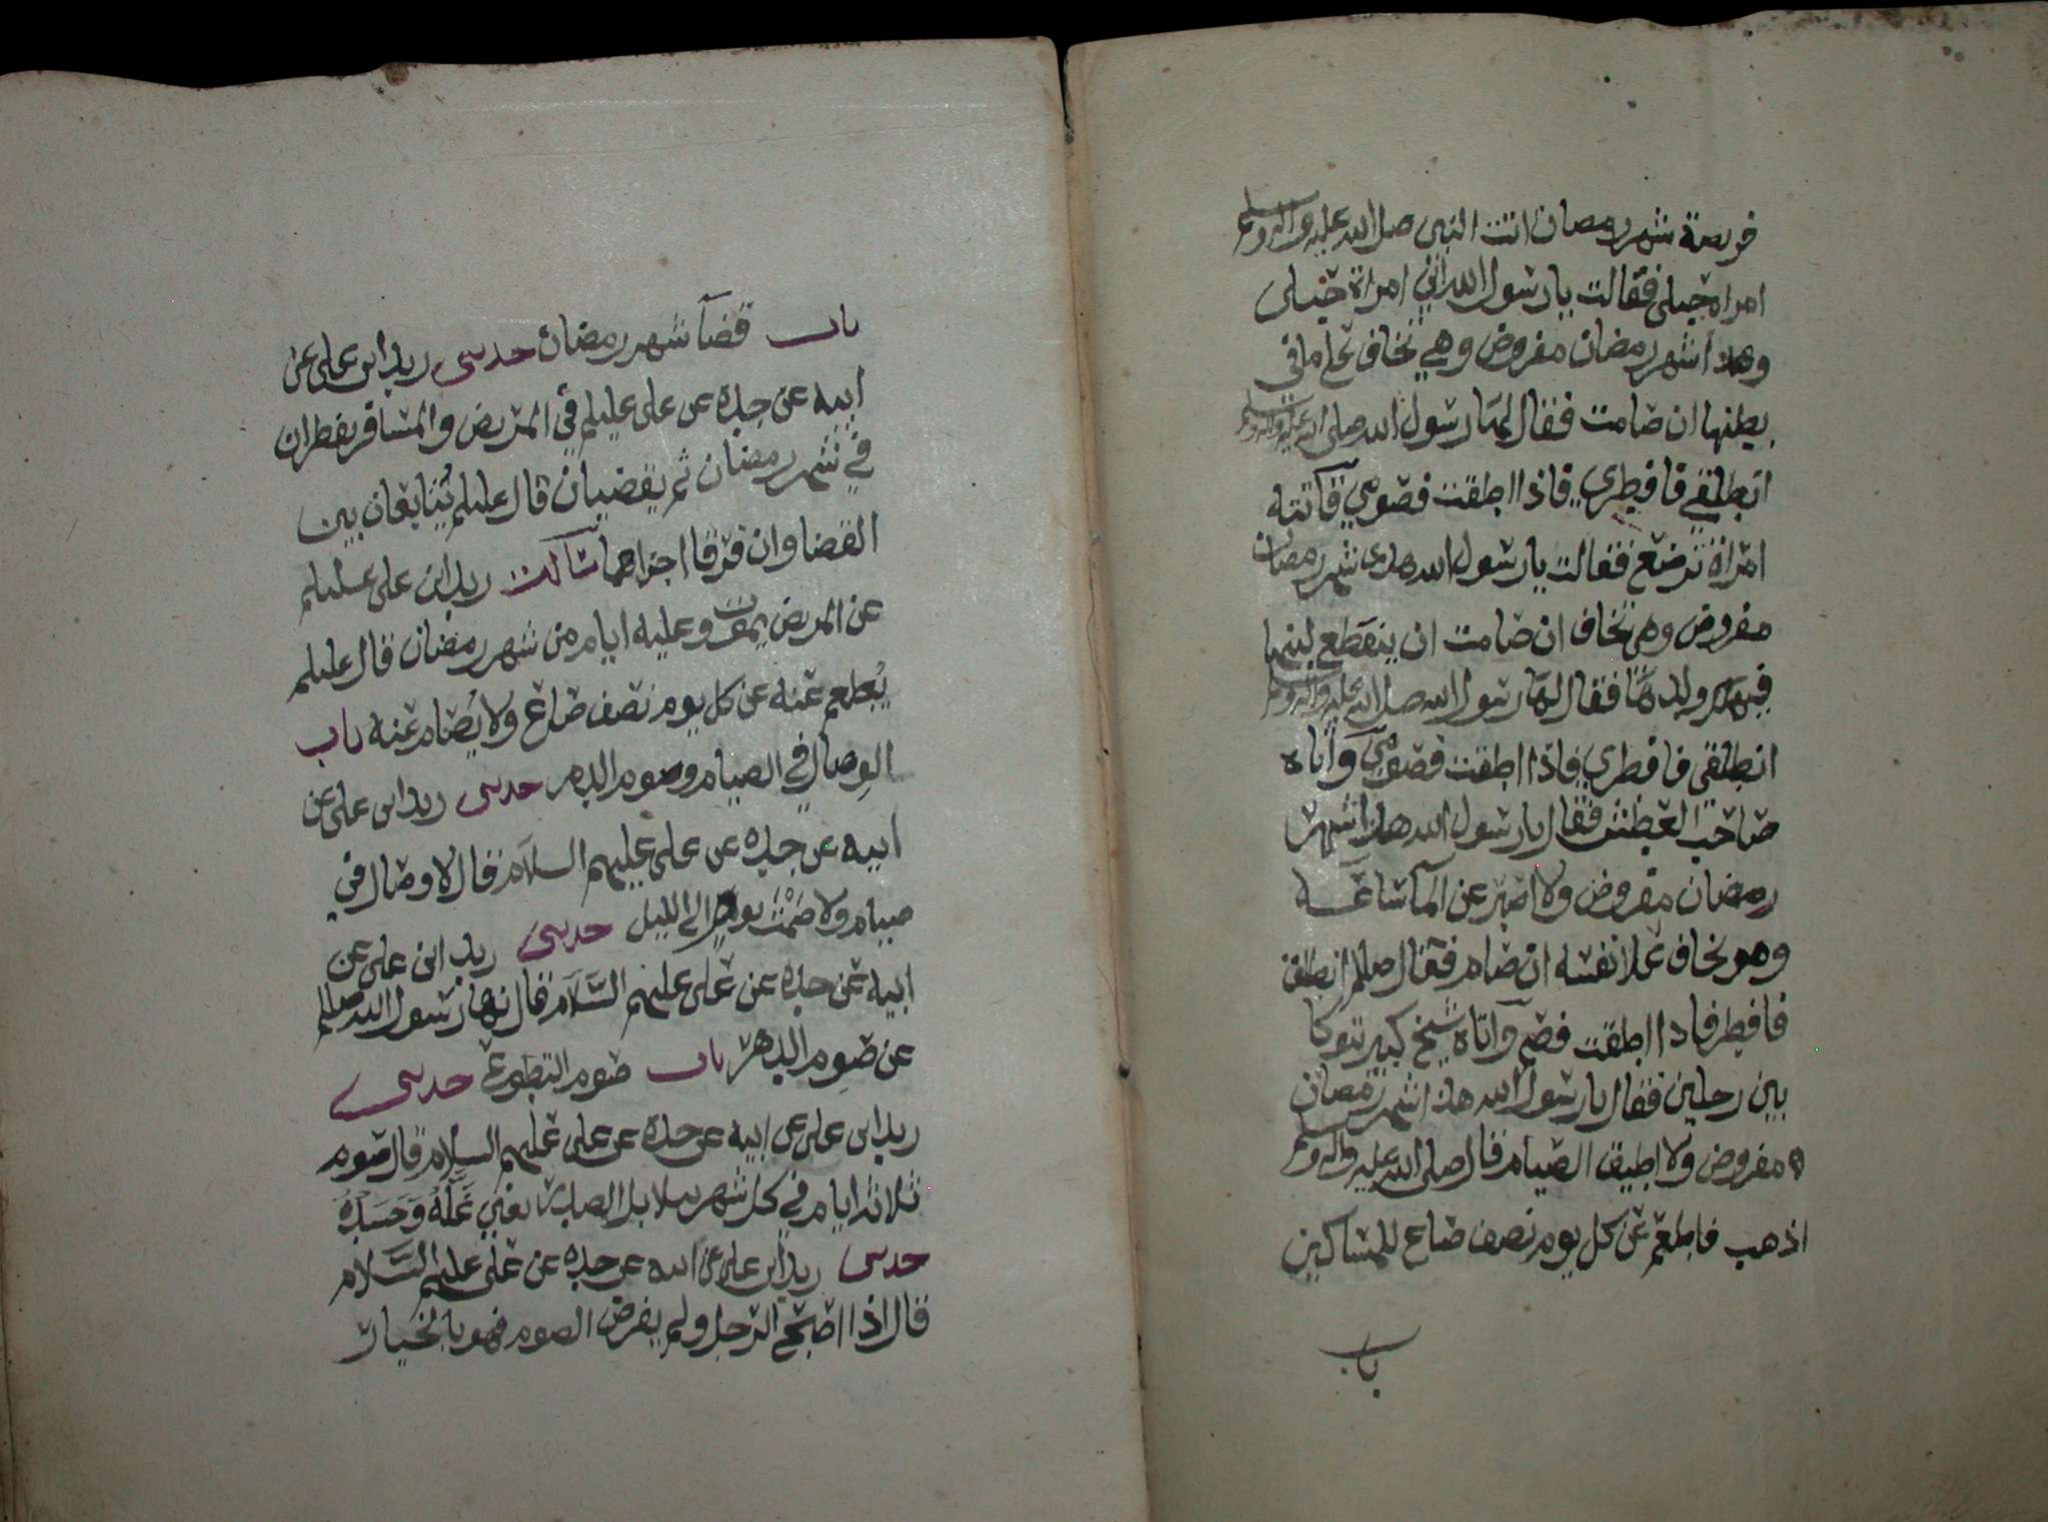 فريضة شهر رمضان اتت النبي صلى الله عليه واله وسلم
امراه حبلى فقالت يا رسول الله اني امراة حبلى
وهذا شهر رمضان مفروض وهي تخاف على ما في
بطنها ان صامت فقال لها رسول الله صلى الله عليه واله وسلم
انطلقي فافطري فاذا اطقت فصومي فاتته
امراة ترضع فقالت يا رسول الله هذى شهر رمضان
مفروض وهي تخاف ان صامت ان ينقطع لبنها
فيهلك ولدها فقال لها رسول الله صلى الله عليه واله وسلم
انطلقي فافطري فاذا اطقت فصومي واتاه
صاحب العطش فقال يا رسول الله هذا شهر
رمضان مفروض ولا اصبر عن المآ ساعة
وهو يخاف علا نفسه ان صام فقال صللم انطلق
فافطر فاذا اطقت فصم واتاه شيخ كبير يتوكا
بين رجلين فقال يا رسول الله هذا شهر رمضان
مفروض ولا اطيق الصيام قال صلى الله عليه واله وسلم
اذهب فاطعم عن كل يوم نصف صاع للمساكين
باب
باب قضآ شهر رمضان حدثني زيد ابن علي عن
ابيه عن جده عن علي عليلم في المريض والمسافر يفطران
في شهر رمضان ثم يقضيان قال عليلم يتابعان بين
القضا وان فرقا اجزاهما سالت زيد ابن علي عليلم
عن المريض يموت وعليه ايام من شهر رمضان قال عليلم
يُطعم عنه عن كل يوم نصف صاع ولا يُصام عنه باب
الوصال في الصيام وصوم الدهر حدثني زيد ابن علي عن
ابيه عن جده عن علي عليهم السلام قال لا وصال في
صيام ولا صَمْت يوم الى الليل حدثني زيد ابن علي عن
ابيه عن جده عن علي عليهم السَّلام قال نها رسول الله صللم
عن صوم الدهر باب صوم التطوع حدثني
زيد ابن علي عن ابيه عن جده عن علي عليهم السلام قال صوم
ثلاثه ايام في كل شهر بلابل الصدر يعني غله وحسده
حدثني زيد ابن علي عن ابيه عن جده عن علي عليهم السَّلام
قال اذا اصبح الرجل ولم يفرض الصوم فهو بالخيار